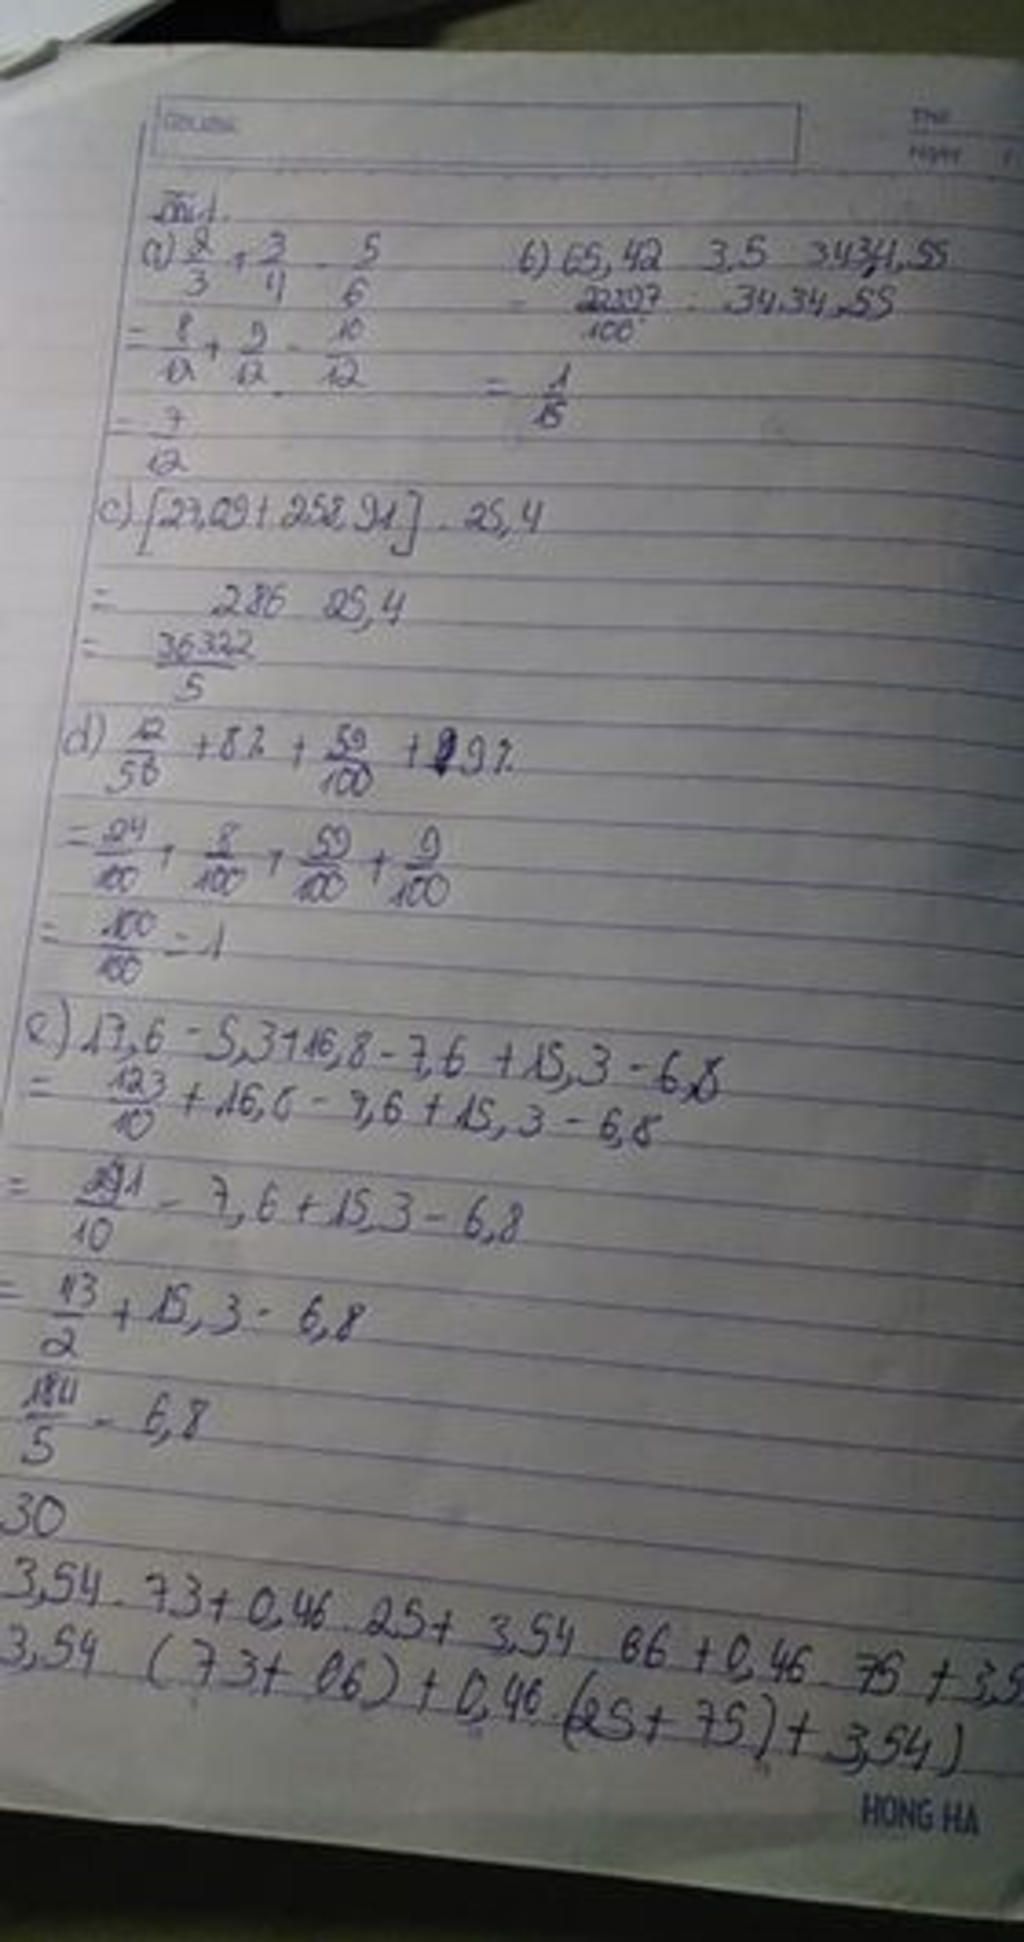 a) 2/3 + 3/4 - 5/6
= 8/12 + 9/12 - 10/12
= 7/12
b) 65,42 3,5 3434,55
= 22897/100 . 3434,55
= 1/15
c) [27,09 + 258,91] . 25,4
= 286 25,4
= 36322/5
d) 12/50 + 8% + 59/100 + 9%
= 24/100 + 8/100 + 59/100 + 9/100
= 100/100 = 1
e) 17,6 - 5,3 + 16,8 - 7,6 + 15,3 - 6,8
= 123/10 + 16,8 - 7,6 + 15,3 - 6,8
= 291/10 - 7,6 + 15,3 - 6,8
= 43/2 + 15,3 - 6,8
184/5 - 6,8
30
3,54 . 73 + 0,46 . 25 + 3,54 66 + 0,46 75 + 3,5
3,54 (73 + 06) + 0,46 . (25 + 75) + 3,54)
HONG HA